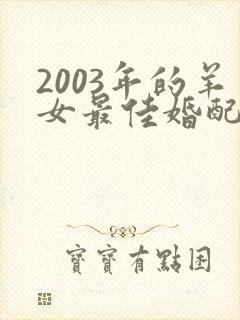 2003年的羊
女最佳婚配
寶寶有點困